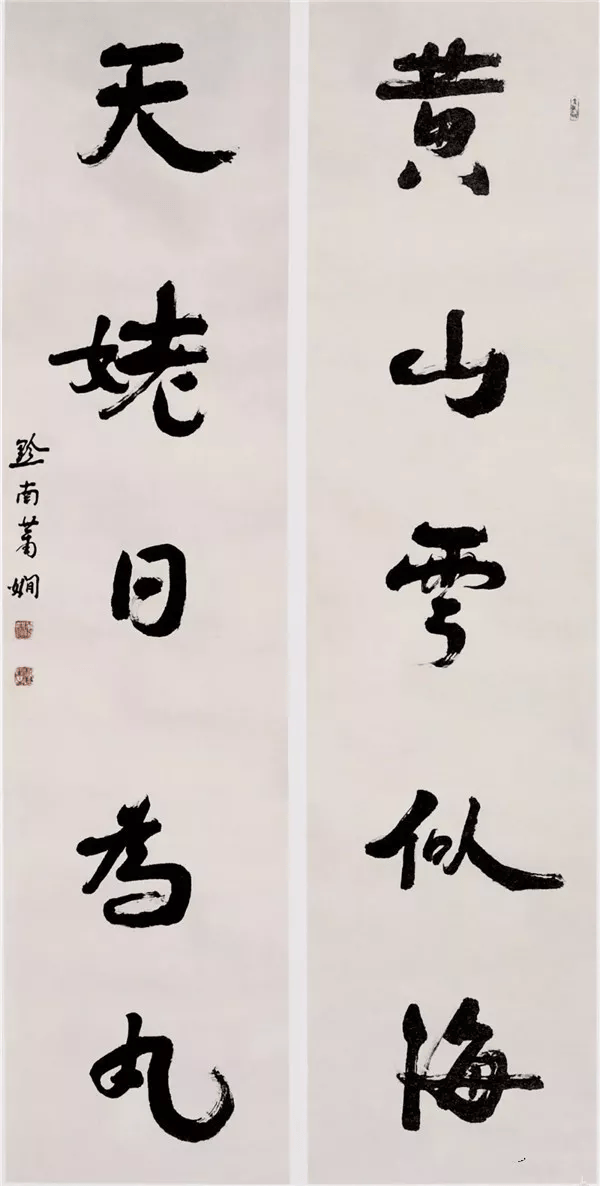 黄山雲似海
天姥日為丸
黔南蕭嫺